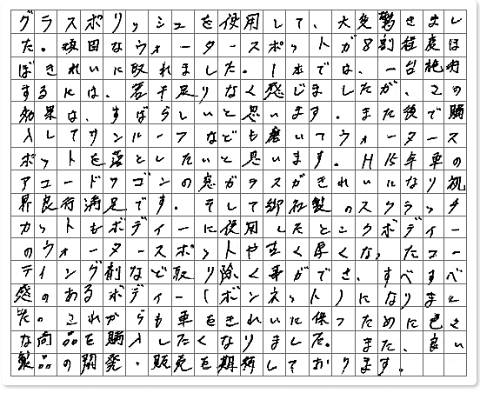 グラスポリッシュを使用して、大変驚きまし
た。頑固なウォータースポットが8割程度は
ほぎれいに取れました。1本では、一台施術
するには、若干足りなく感じましたが、この
効果は、すばらしいと思います。また後で購
入してサンルーフなども磨いてウォータース
ポットを落としたいと思います。H15年車の
アコードワゴンの窓ガラスがきれいになり視
界良好満足です。そして御社製のスクラッチ
カットもボディーに使用したところボディー
のウォータースポットや古く厚くなったコー
ティング剤など取り除く事ができ、すべすべ
感のあるボディー(ボンネット)になりまし
た。これからも車をきれいに保つために色々
な商品を購入したくなりました。また、良い
製品の開発・販売を期待しております。